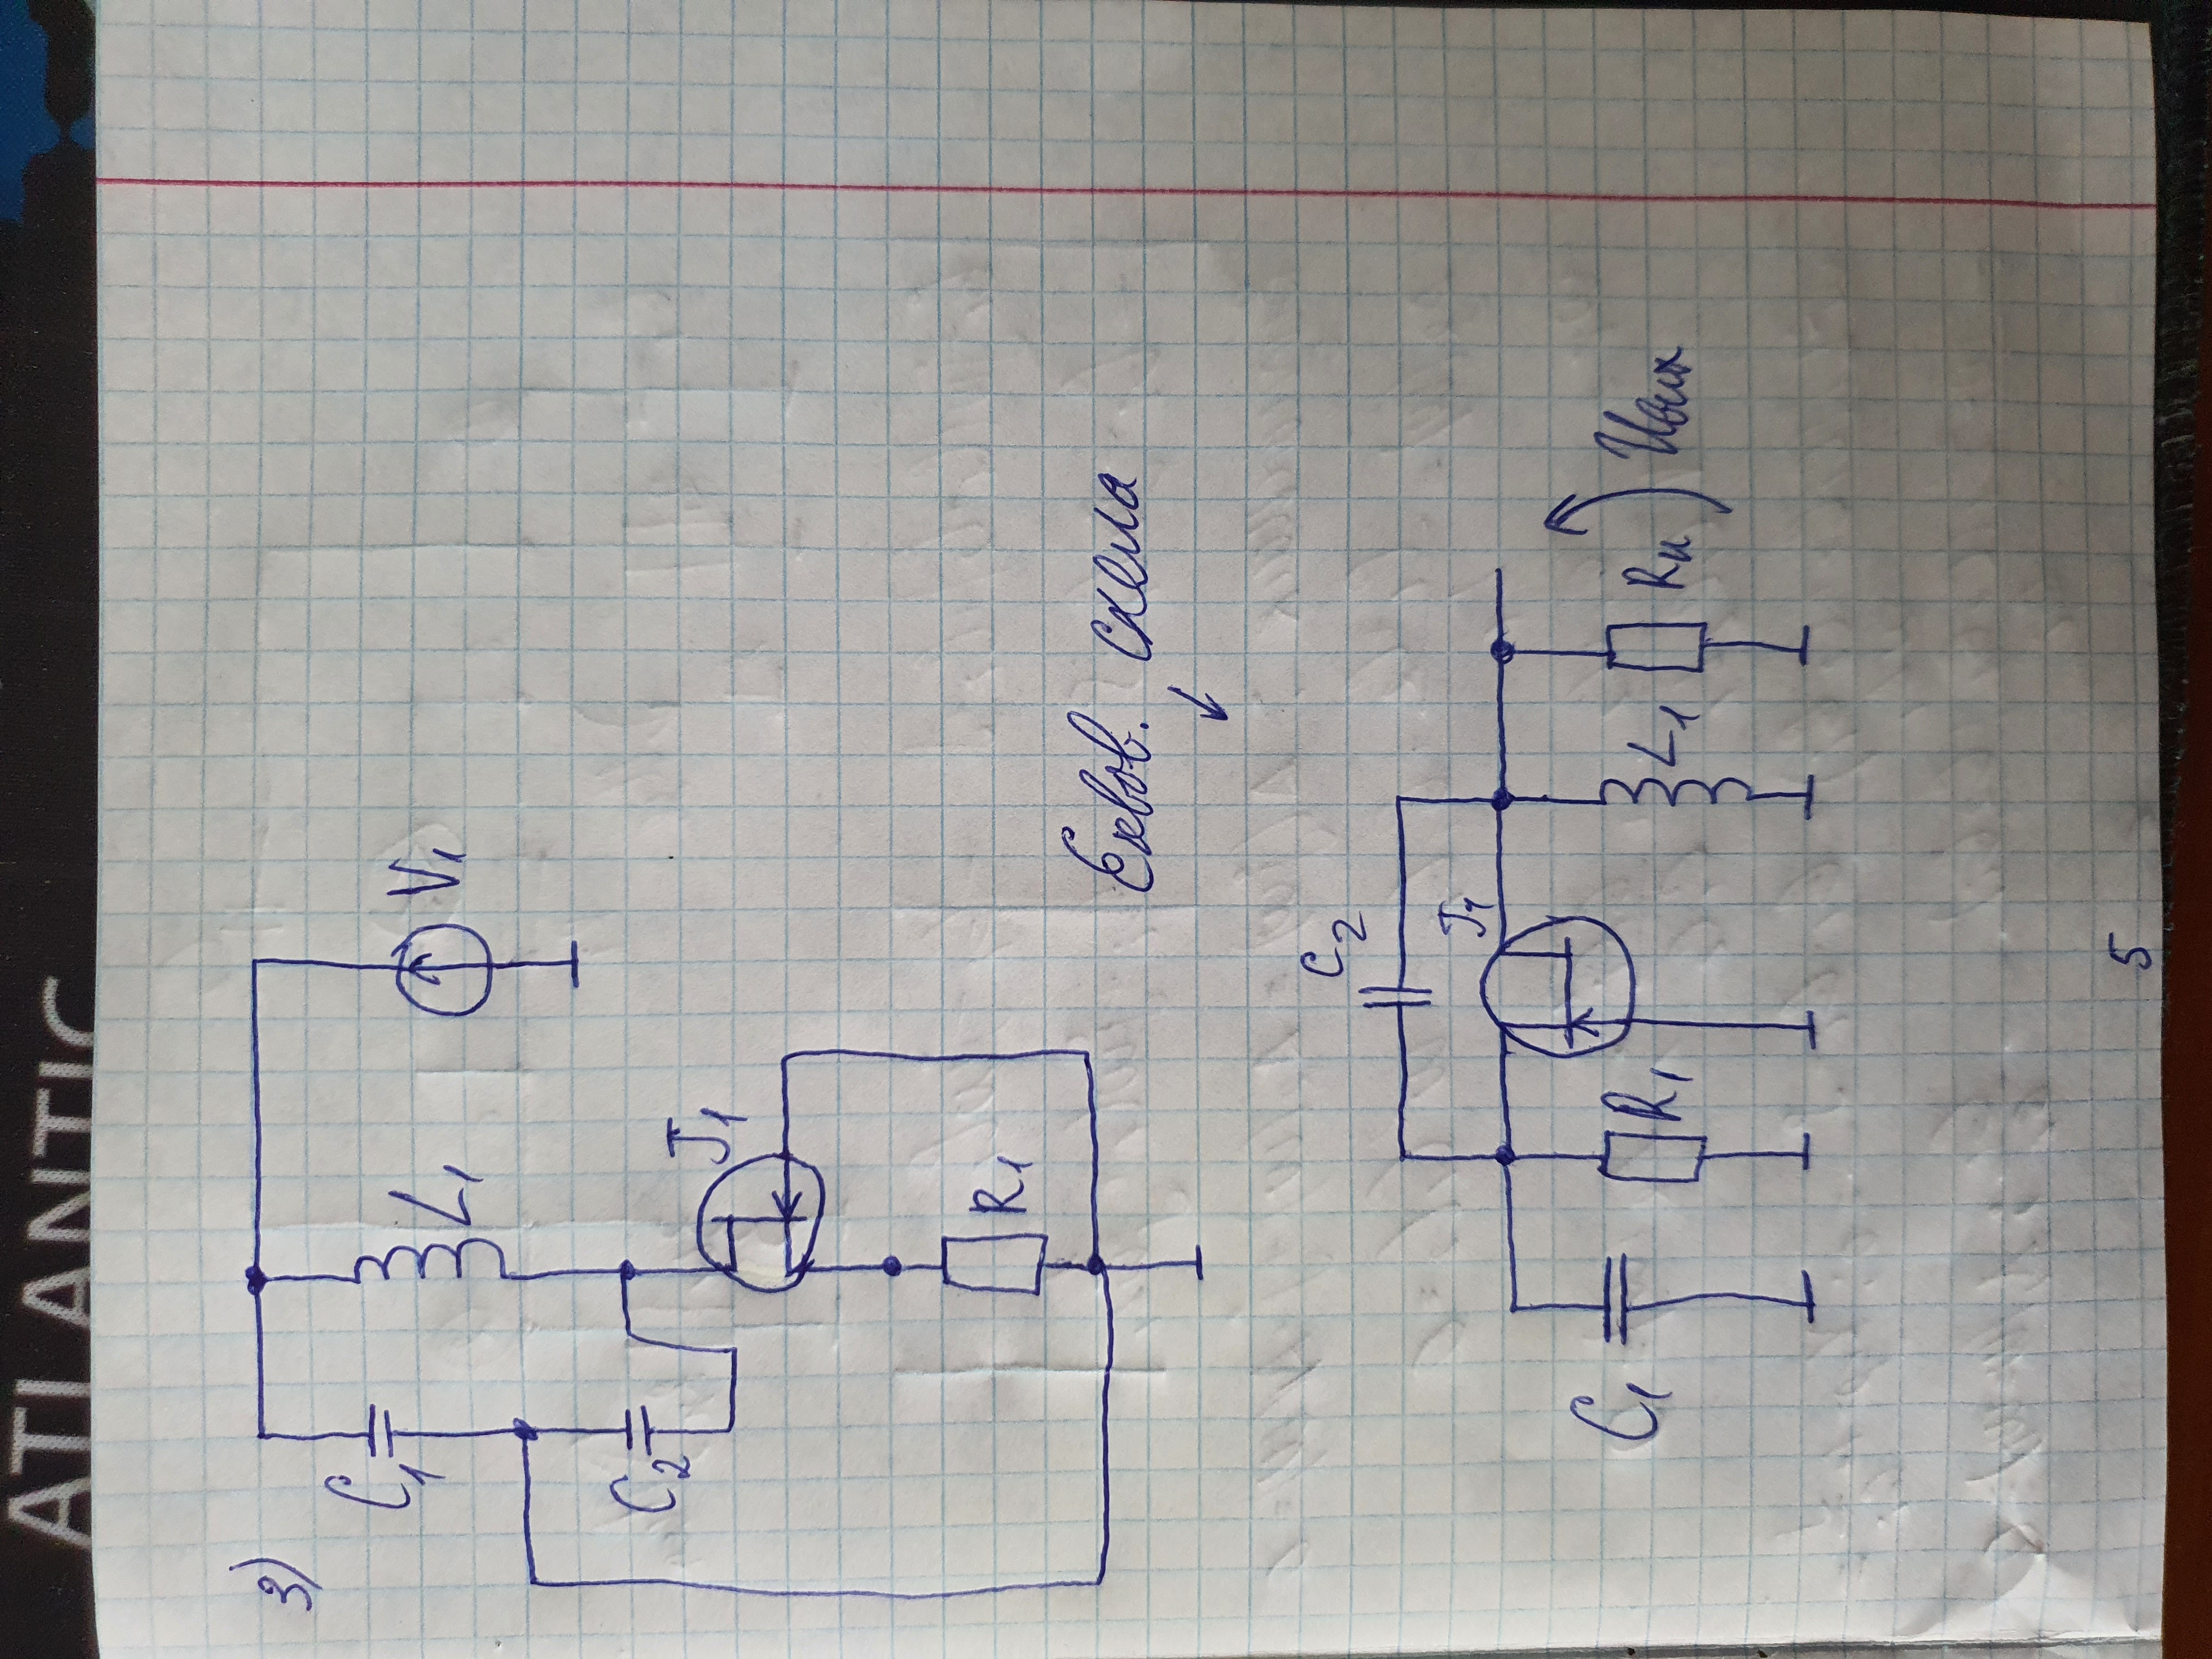 ATLANTIC
3)
C1
L1
V1
C2
J1
R1
Еквов. схема
↓
C2
J1
C1
R1
L1
Rн
Uвих
5